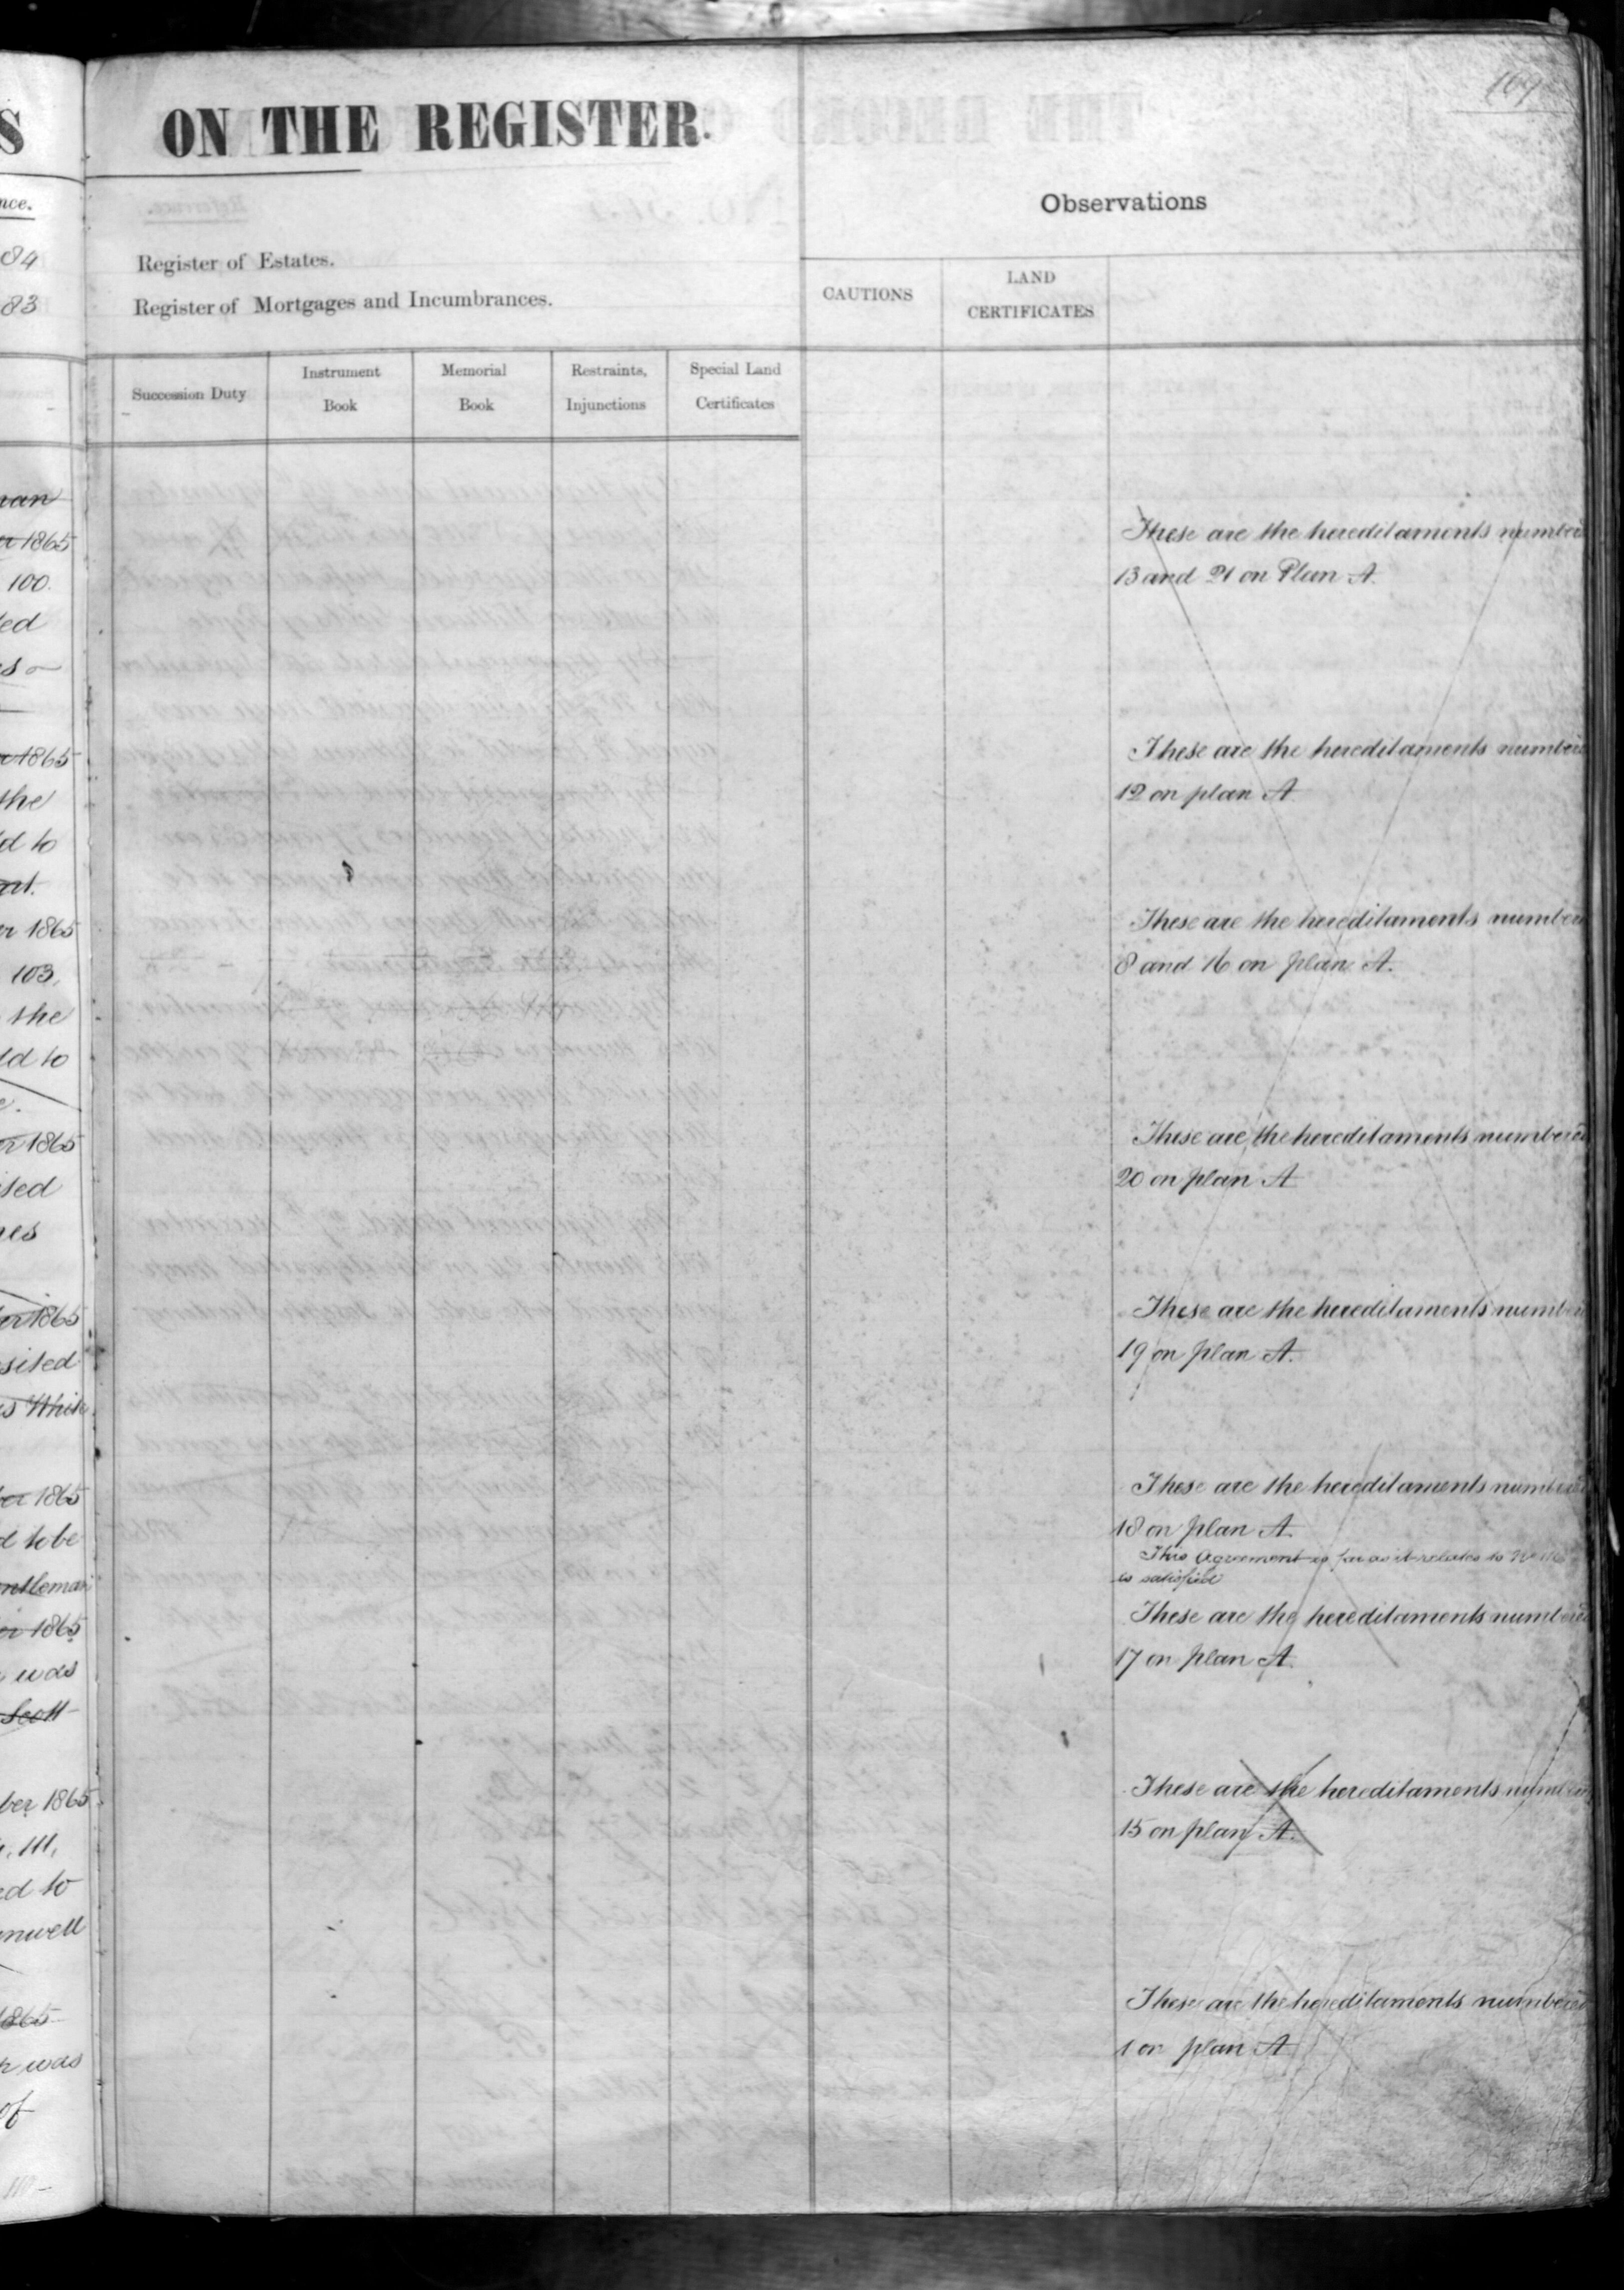 S
nce.
84
83
nan
er 1865
100.
ted
es
er 1865
the
d to
er 1865
103,
the
ld to
e.
er 1865
ited
nes
er 1865
sited
s White
ber 1865
d to be
entleman
er 1865
was
Scott
ber 1865
111,
ed to
nwell
1865
was
of
ON THE REGISTER.
169
Register of Estates.
Register of Mortgages and Incumbrances.
Observations
CAUTIONS
LAND
CERTIFICATES
Succession Duty
Instrument
Book
Memorial
Book
Restraints,
Injunctions
Special Land
Certificates
These are the hereditaments numbered
13 and 21 on Plan A.
These are the hereditaments numbered
12 on plan A
These are the hereditaments numbered
8 and 16 on plan A.
These are the hereditaments numbered
20 on plan A
These are the hereditaments numbered
19 on plan A.
These are the hereditaments numbered
18 on plan A.
This Agreement so far as it relates to No
is satisfied
These are the hereditaments numbered
17 on plan A.
These are the hereditaments numbered
15 on plan A.
These are the hereditaments numbered
1 on plan A